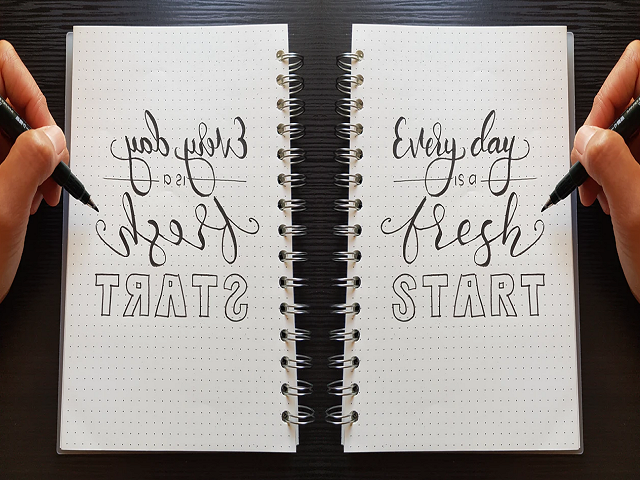 Every day
is a
fresh
START
Every day
is a
fresh
START